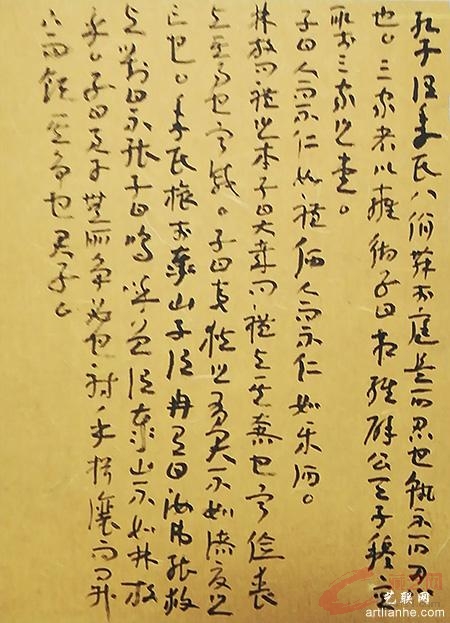 孔子谓季氏八佾舞于庭是可忍也孰不可忍
也。三家者以雍彻子曰相维辟公天子穆
取于三家之堂。
子曰人而不仁如礼何人而不仁如乐何。
林放问礼之本子曰大哉问礼与其奢也宁俭丧
与其易也宁戚。子曰夷狄之有君不如诸夏之
亡也。季氏旅于泰山子谓冉有曰汝弗能救
与对曰不能子曰呜呼曾谓泰山不如林放
乎。子曰君子无所争必也射乎揖让而升
下而饮其争也君子。
艺联网
artlianhe.com